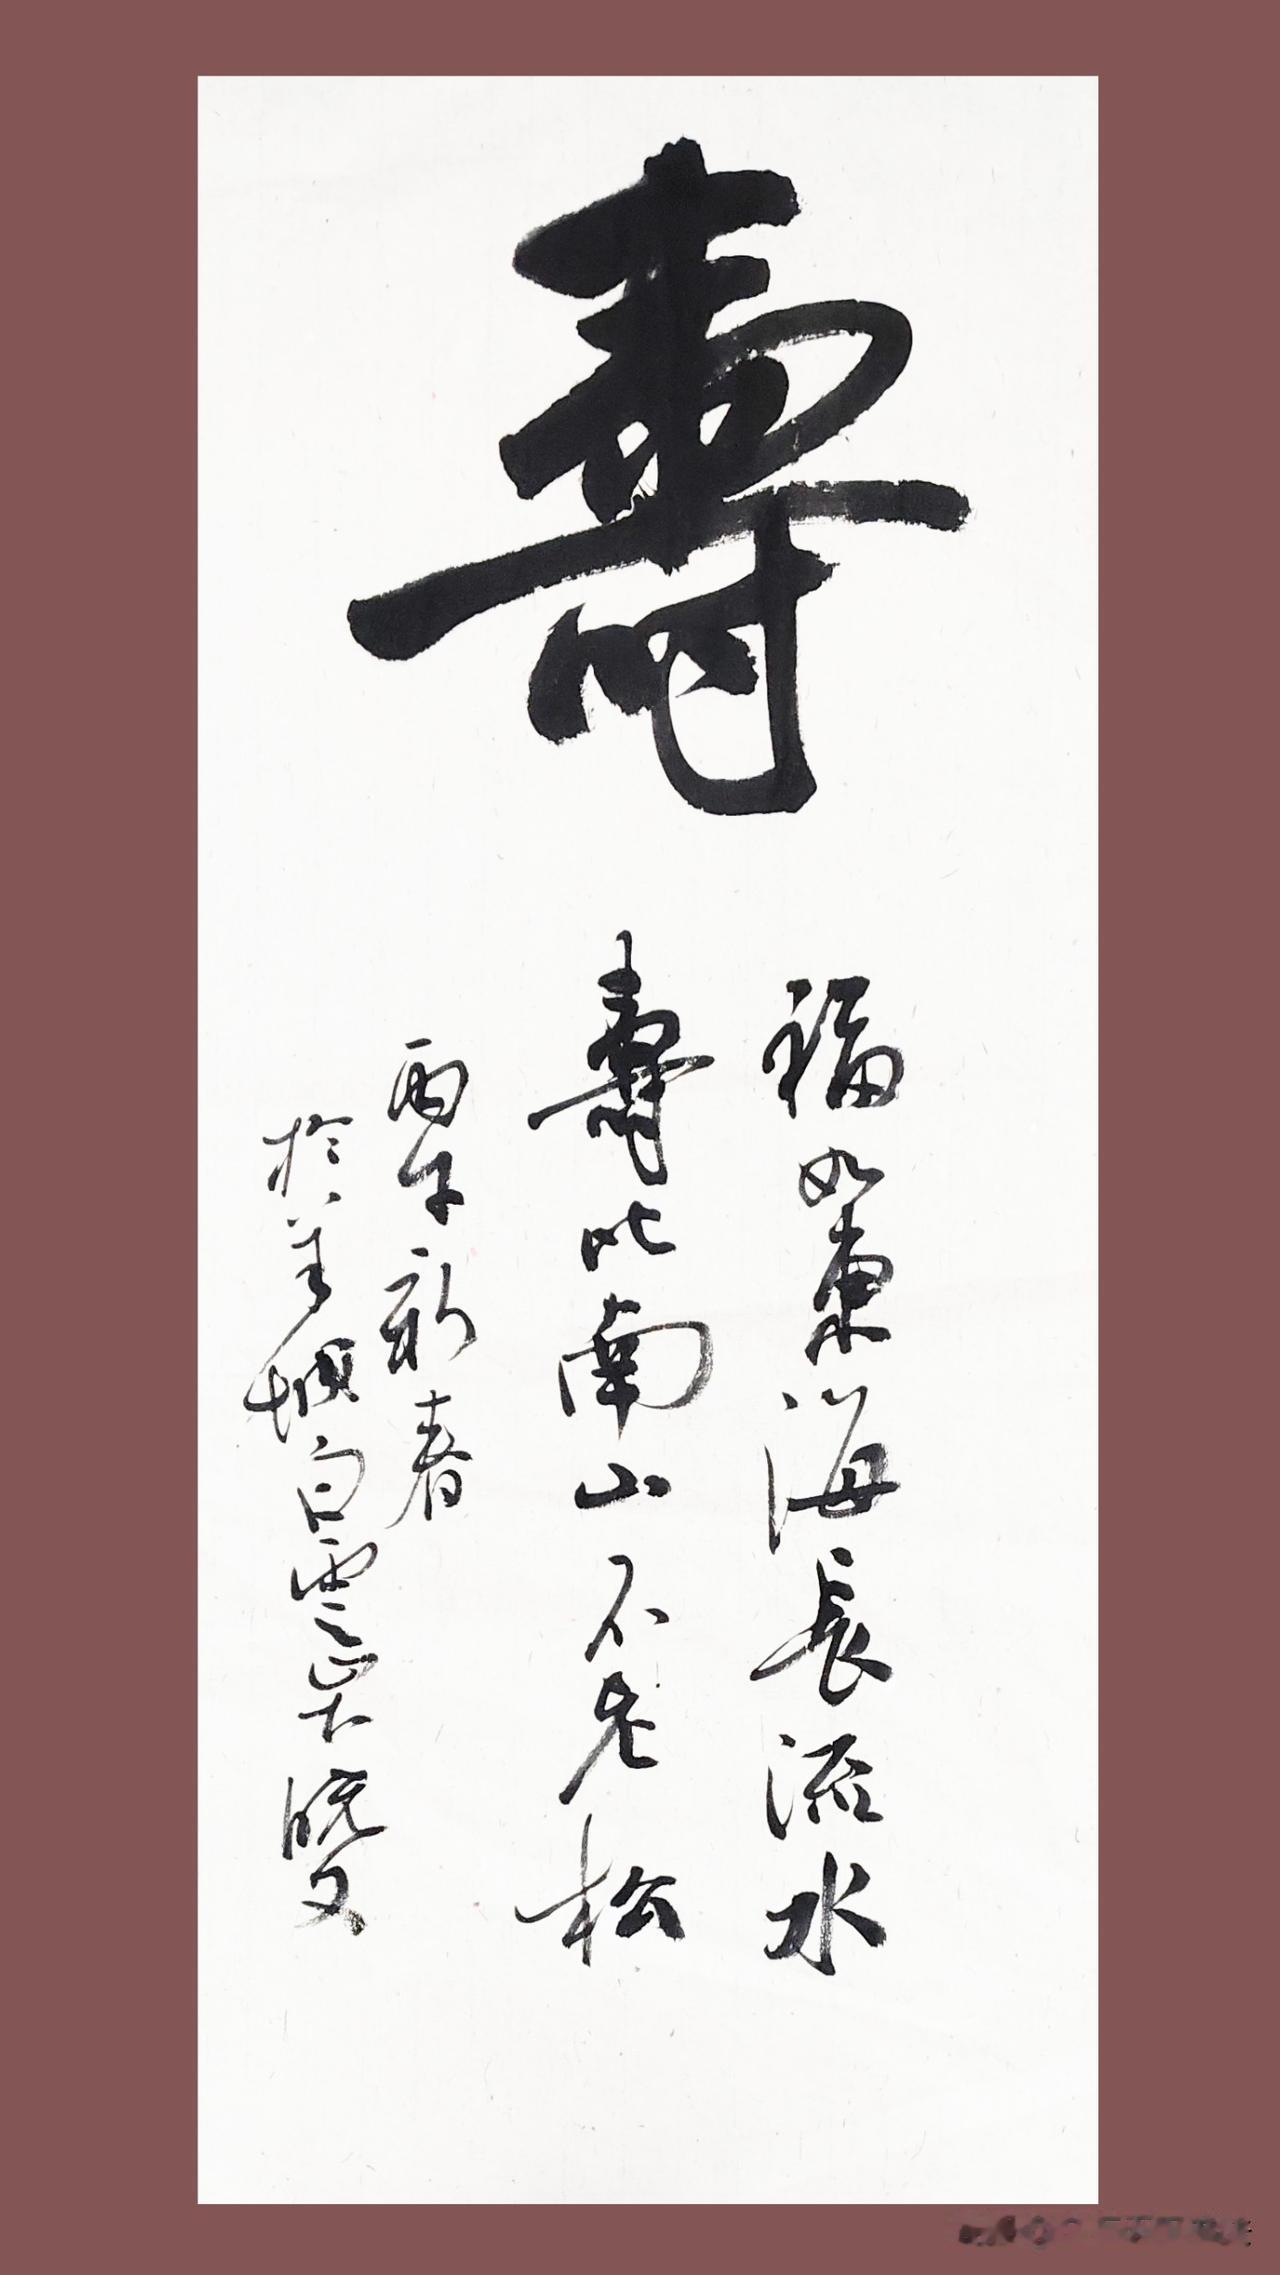 壽
福如東海長流水
壽比南山不老松
丙午新春
於羊城白雲